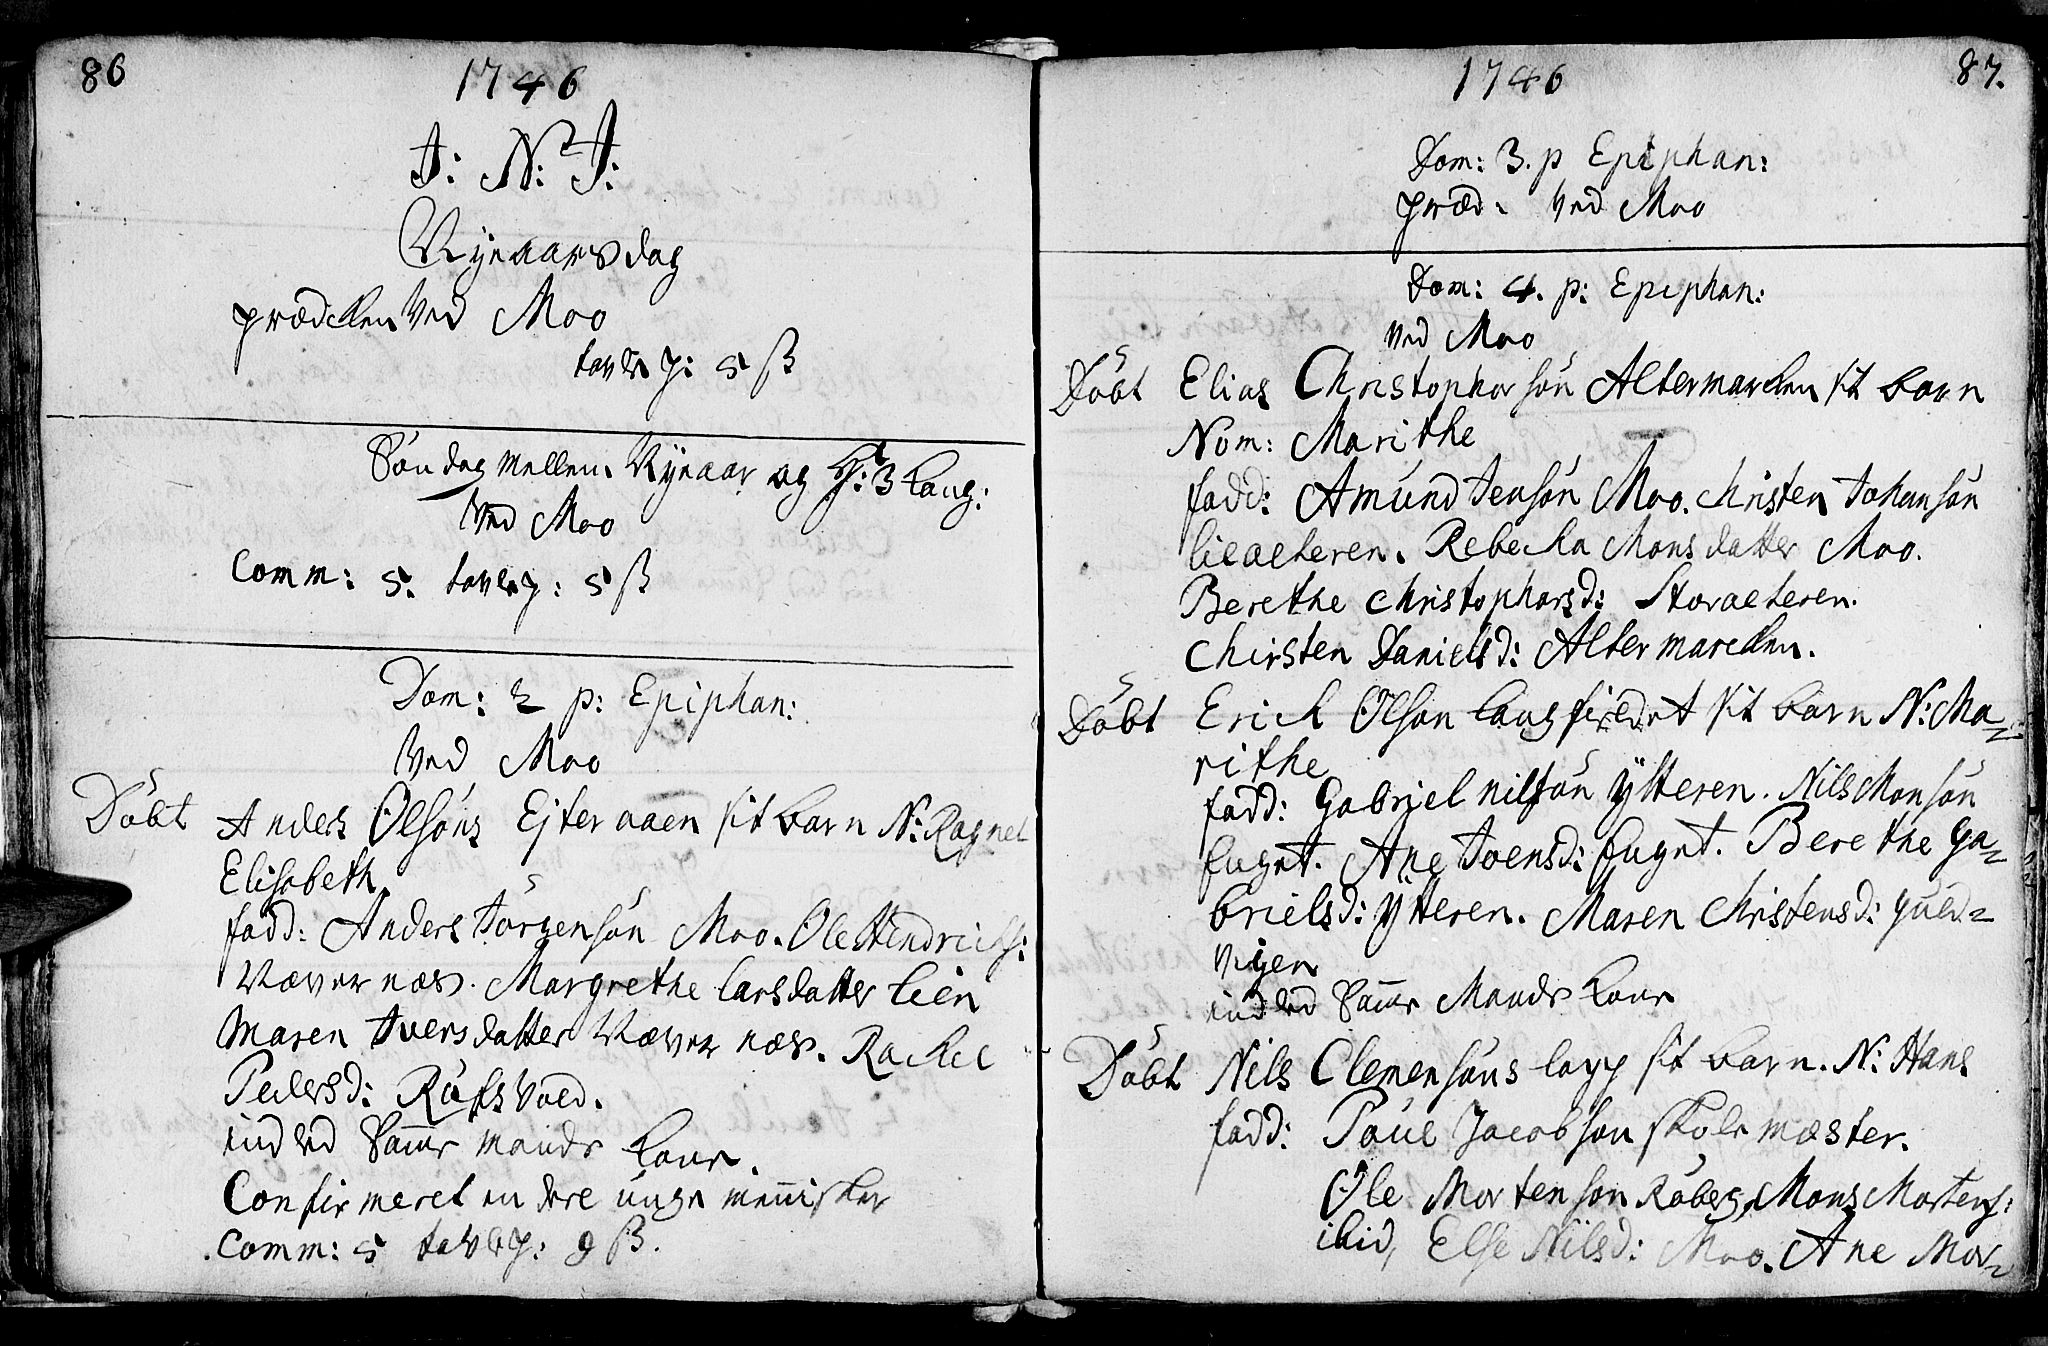 86
1746
J: N: J:
Nyeaarsdag
prædicken Ved Moo
tavlep: 5 ß
Söndag mellem Nyeaar og H: 3 Kong:
Ved Moo
Comm: 5. tavlep: 5 ß
Dom: 2 p: Epiphan:
Ved Moo
Döbt Anders Olsöns Ejteraaen sit barn N: Ragnel
Elisabeth
fadd: Anders Jörgensön Moo. Ole Hendrichs:
Nævernæs. Margrethe Larsdatter Lien
Maren Iversdatter Nævernæs. Rachel
Pedersd: Rüfsvold.
indled samme mands Kone.
Confirmeret en deel unge mennisker
Comm: 5 tavlep: 9 ß.
1746
87.
Dom: 3. p Epiphan:
præd. Ved Moo
Dom: 4. p: Epiphan:
Ved Moo
Döbt Elias Christophersön Altermarcken sit barn
Nom: Marithe
fadd: Amünd Jensön Moo. Christen Johansön
Rebecka Monsdatter Moo.
Berethe Christophersd:
Chirsten Danielsd: Altermarcken.
Döbt Erich Olsön Langfieldet sit barn N: Ma-
rithe
fadd: Gabriel Nilsön Ytteren. Nils Monsön
Ane Joensd: Berethe Ga-
brielsd: Ytteren. Maren Christensd:
vigen
indled samme Mands Kone
Döbt Nils Clemensöns lapp sit barn. N: Hans
fadd: Paüel Jacobsön skolemæster.
Ole Mortensön Röberg, Mons Mortens:
ibid, Else Nilsd: Moo. Ane Mor-